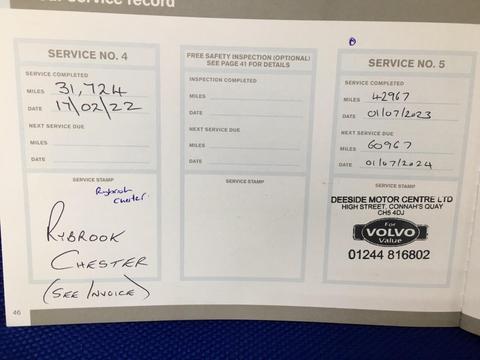 Your service record
SERVICE NO. 4
SERVICE COMPLETED
MILES 31,724
DATE 17/02/22
NEXT SERVICE DUE
MILES
DATE
SERVICE STAMP
Rybrook
Chester.
RYBROOK
CHESTER
(SEE INVOICE)
FREE SAFETY INSPECTION (OPTIONAL)
SEE PAGE 41 FOR DETAILS
INSPECTION COMPLETED
MILES
DATE
NEXT SERVICE DUE
MILES
DATE
SERVICE STAMP
SERVICE NO. 5
SERVICE COMPLETED
MILES 42967
DATE 01/07/2023
NEXT SERVICE DUE
MILES 60967
DATE 01/07/2024
SERVICE STAMP
DEESIDE MOTOR CENTRE LTD
HIGH STREET, CONNAH'S QUAY
CH5 4DJ
For
VOLVO
Value
01244 816802
46